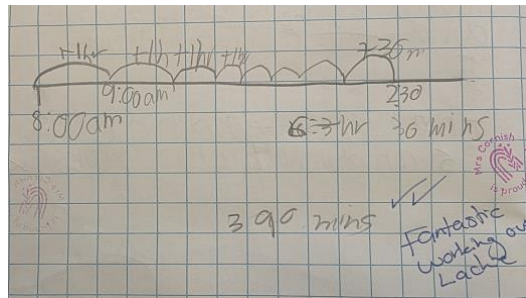 +1hr +1hr +1hr +1hr +30m
9:00am 230
8:00am 6 hr 30 mins
Mrs Cornish is proud
390 mins
Fantastic
working out
Lachie